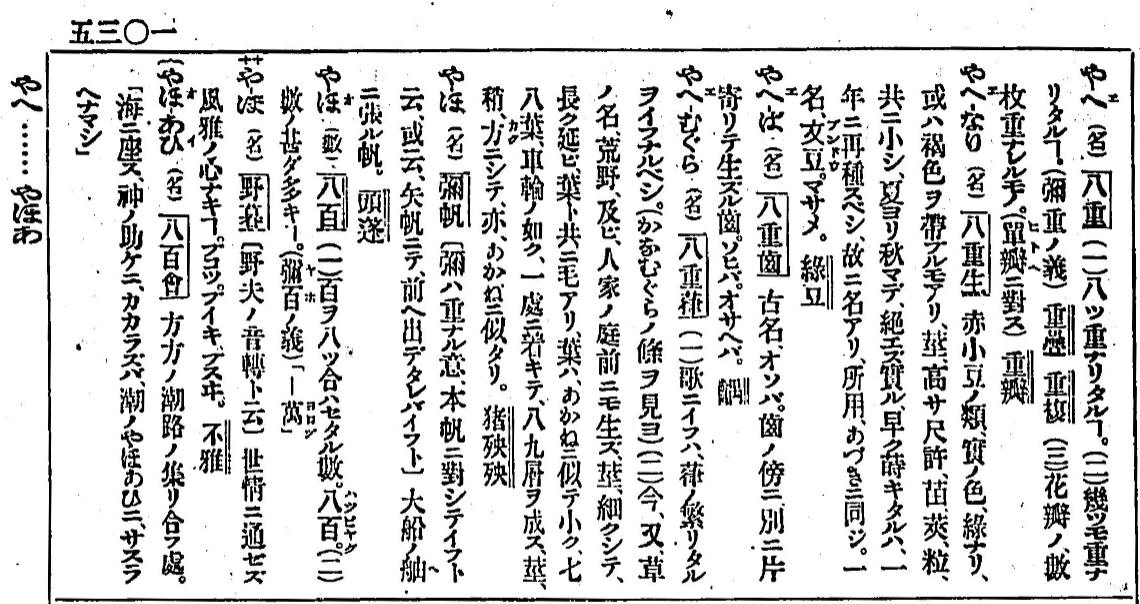 一〇三五
やへ(名)八重(一)八ツ重ナリタルヿ。(二)幾ツモ重ナ
リタルヿ。(彌重ノ義)重疊 重複(三)花瓣ノ、數
枚重ナレルモノ。(單瓣ニ對ス)重瓣
やへなり(名)八重生 赤小豆ノ類、實ノ色、綠ナリ、
或ハ褐色ヲ帶ブルモアリ、莖、高サ尺許、苗、莢、粒、
共ニ小シ、夏ヨリ秋マデ、絕エズ實ル、早ク蒔キタルハ、一
年ニ再種スベシ、故ニ名アリ、所用、あづきニ同ジ。一
名、文豆。マサメ。綠豆
やへば(名)八重齒 古名、オソバ。齒ノ傍ニ別ニ片
寄リテ生ズル齒。ソヒバ。オサヘバ。齵
やへむぐら(名)八重葎(一)歌ニイフハ、葎ノ繁リタル
ヲイフナルベシ。(かなむぐらノ條ヲ見ヨ)(二)今、又、草
ノ名、荒野、及ビ、人家ノ庭前ニモ生ズ、莖、細クシテ、
長ク延ビ、葉ト共ニ毛アリ、葉ハ、あかねニ似テ小ク、七
八葉、車輪ノ如ク、一處ニ着キテ、八九層ヲ成ス、莖、
稍、方ニシテ、亦、あかねニ似タリ。猪殃殃
やほ(名)彌帆〔彌ハ重ナル意、本帆ニ對シテイフト
云、或云、矢帆ニテ、前ヘ出デタレバイフト〕大船ノ舳
ニ張ル帆。頭篷
やほ(數)八百(一)百ヲ八ツ合ハセタル數。八百。(二)
數ノ甚ダ多キヿ。(彌百ノ義)「―萬」
やぼ(名)野暮〔野夫ノ音轉ト云〕世情ニ通ゼズ
風雅ノ心ナキヿ。ブコツ。ブイキ。ブスヰ。不雅
やほあひ(名)八百會 方方ノ潮路ノ集リ合フ處。
「海ニ座ス、神ノ助ケニ、カカラズバ、潮ノやほあひニ、サスラ
ヘナマシ」
やへ……やほあ